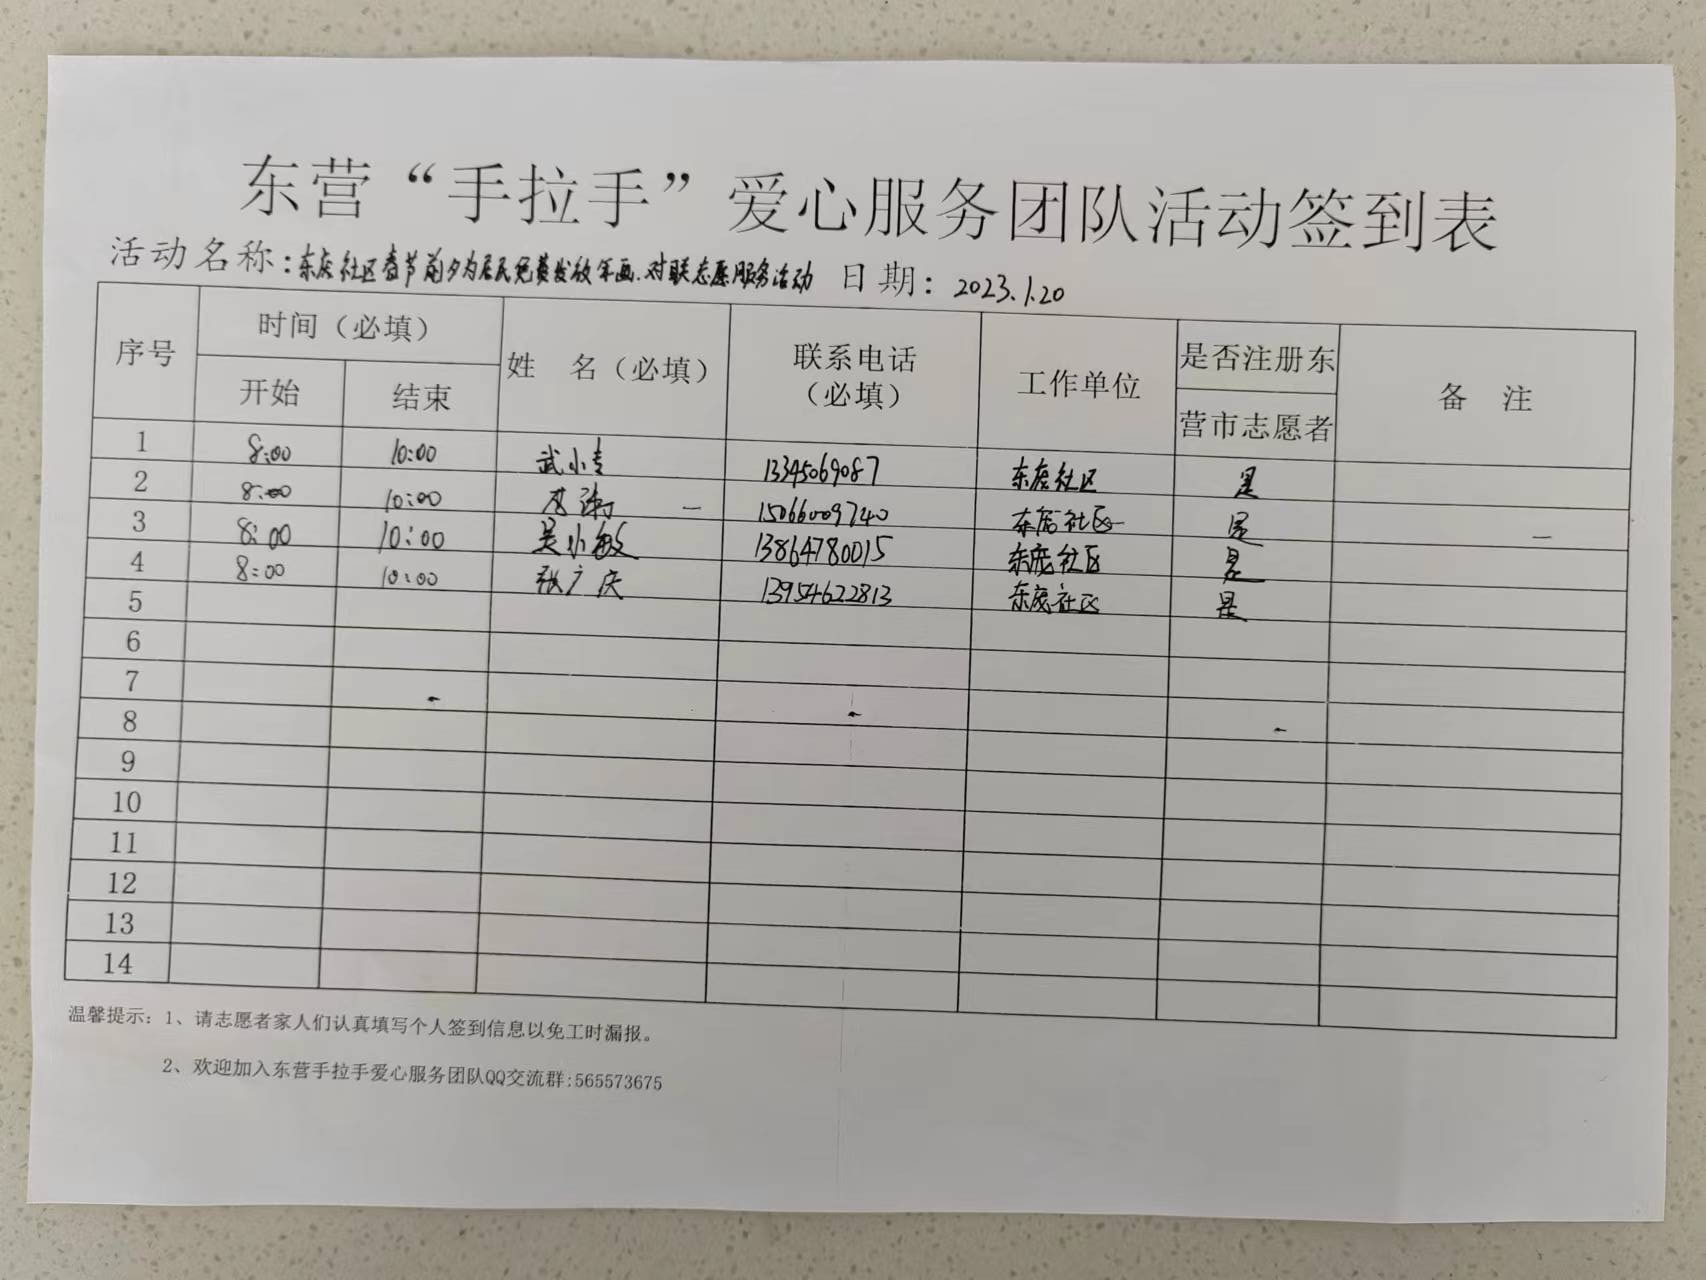 东营“手拉手”爱心服务团队活动签到表
活动名称：东辰社区春节前夕为居民免费发放年画、对联志愿服务活动 日期：2023.1.20
序号 时间（必填） 姓 名（必填） 联系电话（必填） 工作单位 是否注册东营市志愿者 备 注
开始 结束
1 8:00 10:00 武小青 13345069087 社区 是
2 8:00 10:00 15066009740 社区 是
3 8:00 10:00 吴小敏 13864780015 社区 是
4 8:00 10:00 张广庆 13954622813 社区 是
5
6
7
8
9
10
11
12
13
14
温馨提示：1、请志愿者家人们认真填写个人签到信息以免工时漏报。
2、欢迎加入东营手拉手爱心服务团队QQ交流群:565573675